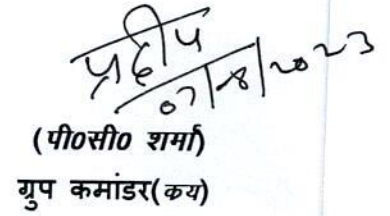 प्रदीप
07/8/2023
(पी0सी0 शर्मा)
ग्रुप कमांडर(कय)